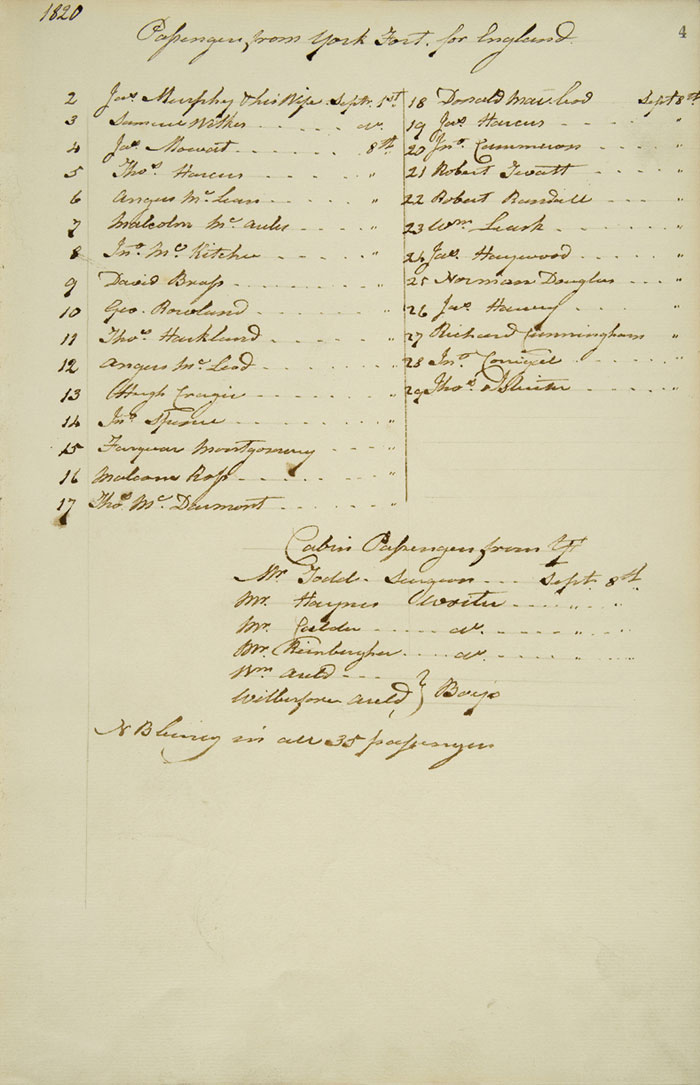 1820
4
Passengers from York Fort. for England
2 Jas. Murphy & his Wife Septr. 1st
3 Samuel Wilkes do.
4 Jas. Mowat 8th
5 Thos. Harcus "
6 Angus Mc. Lean "
7 Malcolm Mc. Aulis "
8 Jno. Mc. Kitche "
9 David Brass "
10 Geo. Rowland "
11 Thos. Harkland "
12 Angus Mc. Leod "
13 Hugh Cragie "
14 Jno. Spence "
15 Farquar Montgomery "
16 Malcom Ross "
17 Thos. Mc. Dearmont "
18 Donald Macleod Sept 8th
19 Jas. Harcus "
20 Jno. Cammeron "
21 Robert Twatt "
22 Robert Randall "
23 Wm. Leask "
24 Jas. Haywood "
25 Norman Douglas "
26 Jas. Harvey "
27 Richard Cunningham "
28 Jno. Corrigal "
29 Thos. "
Cabin Passengers from Yt
Mr. Todd Surgeon Sept. 8th
Mr. Haynes Writer " "
Mr. Calder do. " "
Mr. Reinbergher do. "
Wm Auld
Wilberforce Auld } Boys
N B being in all 35 passengers